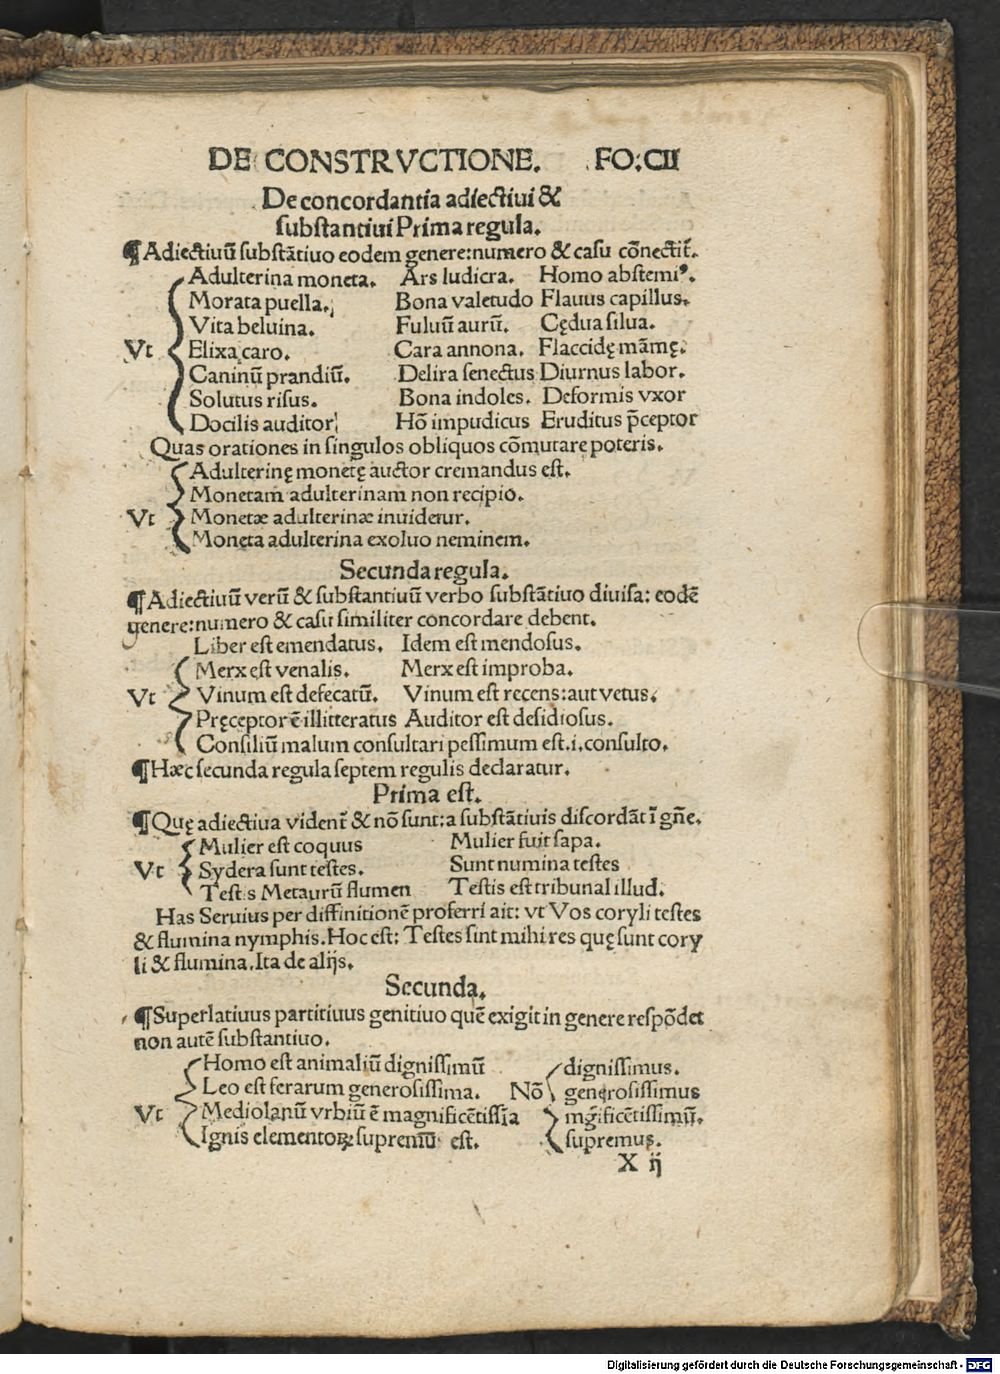 DE CONSTRVCTIONE. FO. CII
De concordantia adiectiui &
substantiui Prima regula.
¶ Adiectiuū substātiuo eodem genere: numero & casu cōnectit̄.
Adulterina moneta. Ars ludicra. Homo abstemiꝰ.
Morata puella. Bona valetudo Flauus capillus.
Vita beluina. Fuluū aurū. Cędua silua.
Vt Elixa caro. Cara annona. Flaccidę māmę.
Caninū prandiū. Delira senectus Diurnus labor.
Solutus risus. Bona indoles. Deformis vxor
Docilis auditor Hō impudicus Eruditus p̄ceptor
Quas orationes in singulos obliquos cōmutare poteris.
Adulterinę monetę auctor cremandus est.
Monetam adulterinam non recipio.
Vt Monetæ adulterinæ inuidetur.
Moneta adulterina exoluo neminem.
Secunda regula.
¶ Adiectiuū verū & substantiuū verbo substātiuo diuisa: eodē
genere: numero & casu similiter concordare debent.
Liber est emendatus. Idem est mendosus.
Merx est venalis. Merx est improba.
Vt Vinum est defecatū. Vinum est recens: aut vetus.
Pręceptor ē illitteratus Auditor est desidiosus.
Consiliū malum consultari pessimum est .i. consulto.
¶ Hæc secunda regula septem regulis declaratur.
Prima est.
¶ Quę adiectiua vident̄ & nō sunt: a substātiuis discordāt ī gn̄e.
Mulier est coquus Mulier fuit sapa.
Vt Sydera sunt testes. Sunt numina testes
Testis Metaurū flumen Testis est tribunal illud.
Has Seruius per diffinitionē proferri ait: vt Vos coryli testes
& flumina nymphis. Hoc est: Testes sint mihi res quę sunt cory
li & flumina. Ita de alijs.
Secunda.
¶ Superlatiuus partitiuus genitiuo quē exigit in genere respōdet
non autē substantiuo.
Homo est animaliū dignissimū dignissimus.
Leo est ferarum generosissima. Nō generosissimus
Vt Mediolanū vrbiū ē magnificētissīa mg̃ificētissimū.
Ignis elementoꝝ supremū est. supremus.
X ij
Digitalisierung gefördert durch die Deutsche Forschungsgemeinschaft - DFG